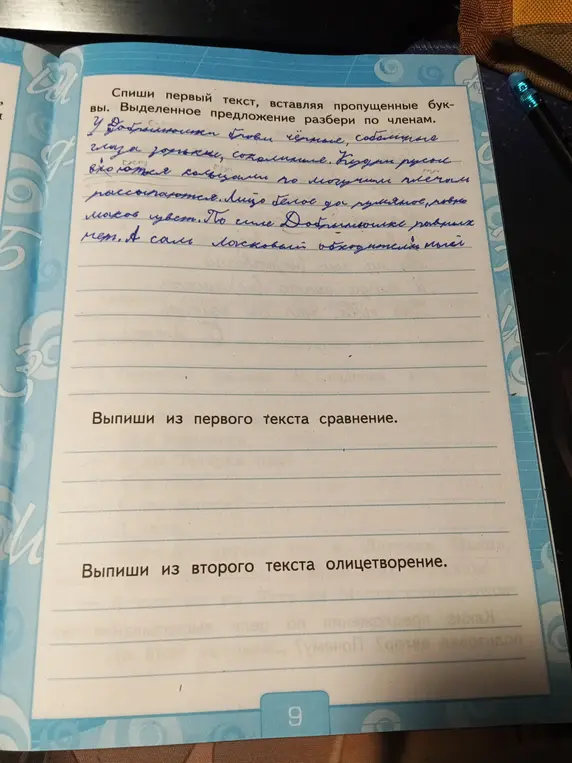 Спиши первый текст, вставляя пропущенные бук-
вы. Выделенное предложение разбери по членам.
У Добрынюшки брови чёрные, соболиные
глаза зоркие, соколиные. Кудри русые
вьются кольцами по могучим плечам
рассыпаются. Лицо белое да румяное, ровно
маков цвет. По силе Добрынюшке равных
нет. А сам ласковый обходительный
Выпиши из первого текста сравнение.
Выпиши из второго текста олицетворение.
9